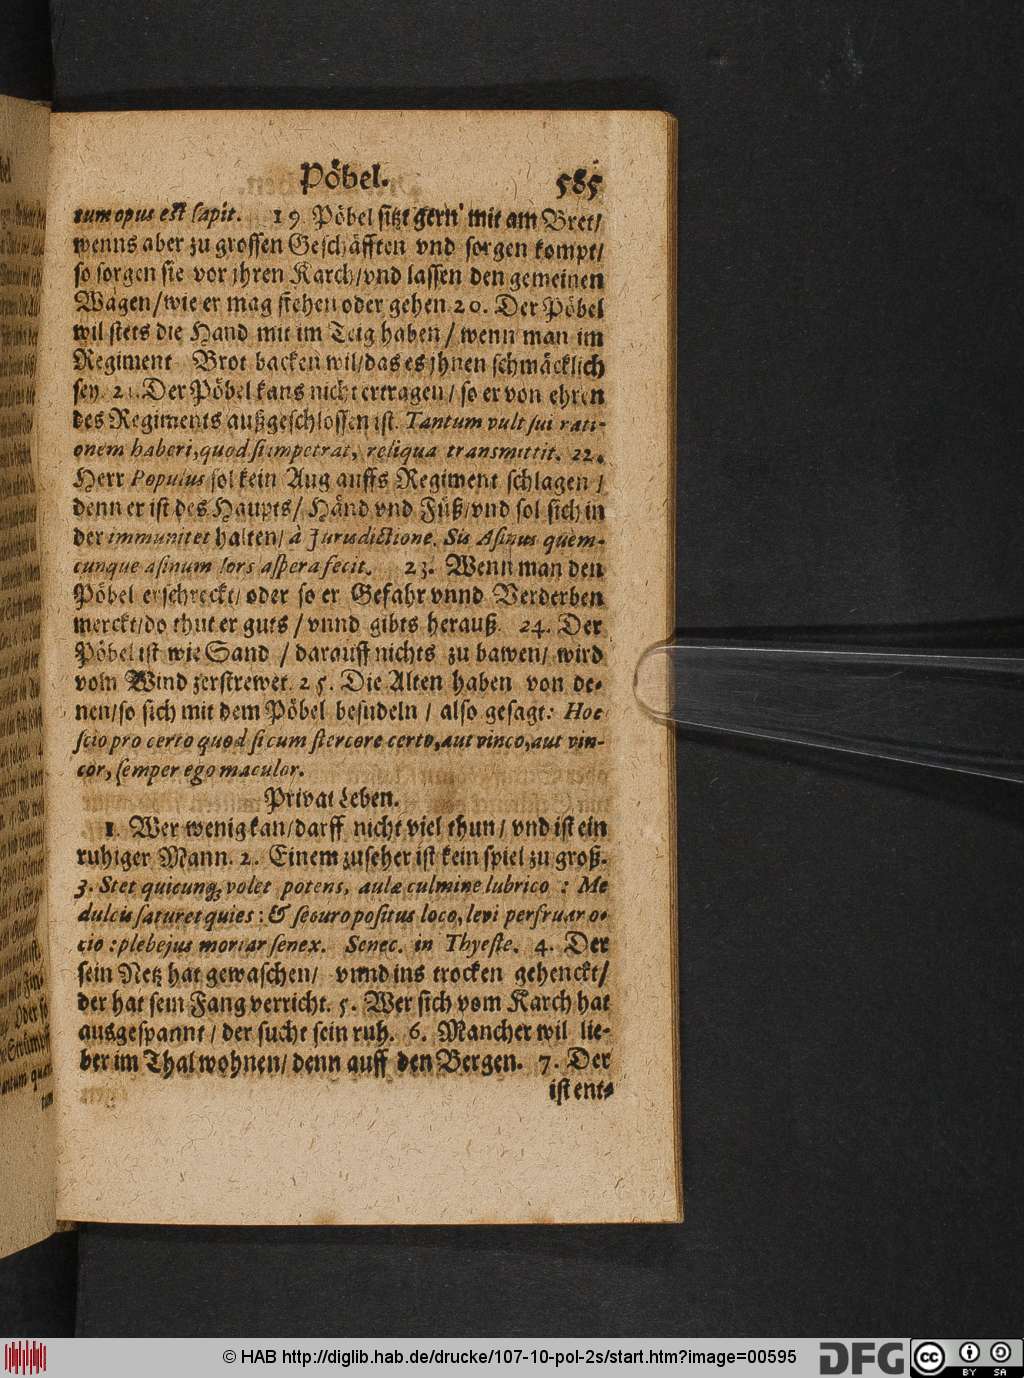 Pöbel. 585
tum opus est sapit. 19 Pöbel sitzt gern mit am Bret/
wenns aber zu grossen Geschäfften vnd sorgen kompt/
so sorgen sie vor jhren Karch/vnd lassen den gemeinen
Wagen/wie er mag stehen oder gehen 20. Der Pöbel
wil stets die Hand mit im Teig haben/ wenn man im
Regiment Brot backen wil/das es jhnen schmäcklich
sey. 21. Der Pöbel kans nicht ertragen/ so er von ehren
des Regiments außgeschlossen ist. Tantum vult sui rati-
onem haberi, quod si impetrat, reliqua transmittit. 22.
Herr Populus sol kein Aug auffs Regiment schlagen /
denn er ist des Haupts/ Händ vnd Füß/vnd sol sich in
der immunitet halten/ à Jurisdictione. Sis Asinus quem-
cunque asinum sors aspera fecit. 23. Wenn man den
Pöbel erschreckt/ oder so er Gefahr vnnd Verderben
merckt/do thut er guts / vnnd gibts herauß. 24. Der
Pöbel ist wie Sand / darauff nichts zu bawen/ wird
vom Wind zerstrewet. 25. Die Alten haben von de-
nen/so sich mit dem Pöbel besudeln / also gesagt: Hoc
scio pro certo quod si cum stercore certo, aut vinco, aut vin-
cor, semper ego maculor.
Privat Leben.
1. Wer wenig kan/darff nicht viel thun/ vnd ist ein
ruhiger Mann. 2. Einem zuseher ist kein spiel zu groß.
3. Stet quicunq; volet potens, aulæ culmine lubrico : Me
dulcis saturet quies : & securo positus loco, levi perfruar o-
cio : plebejus moriar senex. Senec. in Thyeste. 4. Der
sein Netz hat gewaschen/ vnnd ins trocken gehenckt/
der hat sein Fang verricht. 5. Wer sich vom Karch hat
ausgespannt / der sucht sein ruh. 6. Mancher wil lie-
ber im Thal wohnen/ denn auff den Bergen. 7. Der
ist ent-
© HAB http://diglib.hab.de/drucke/107-10-pol-2s/start.htm?image=00595
DFG
cc
BY SA